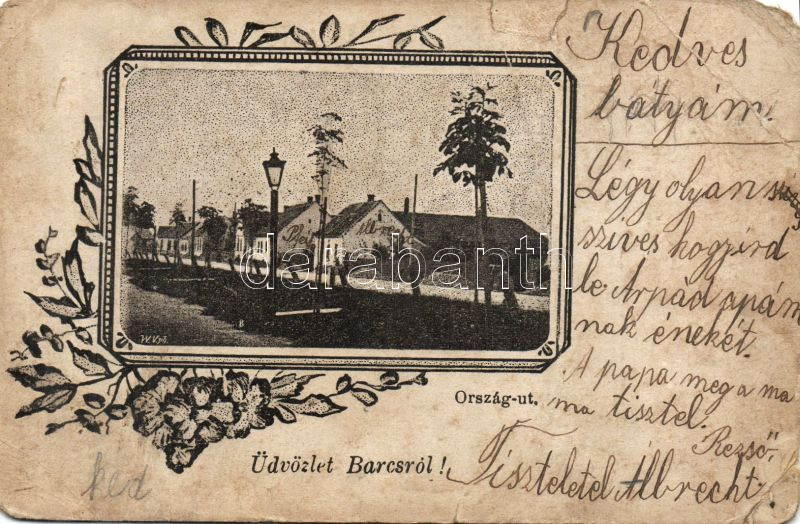 Kedves
bátyám.
Légy olyan
szives hogy ird
le Árpád apám
nak énekét.
A papa meg a ma
ma tisztel.
Rezső.
Tiszteletel Albrecht
Ország-ut.
Üdvözlet Barcsról!
ked
darabanth
W. Vpő.
B